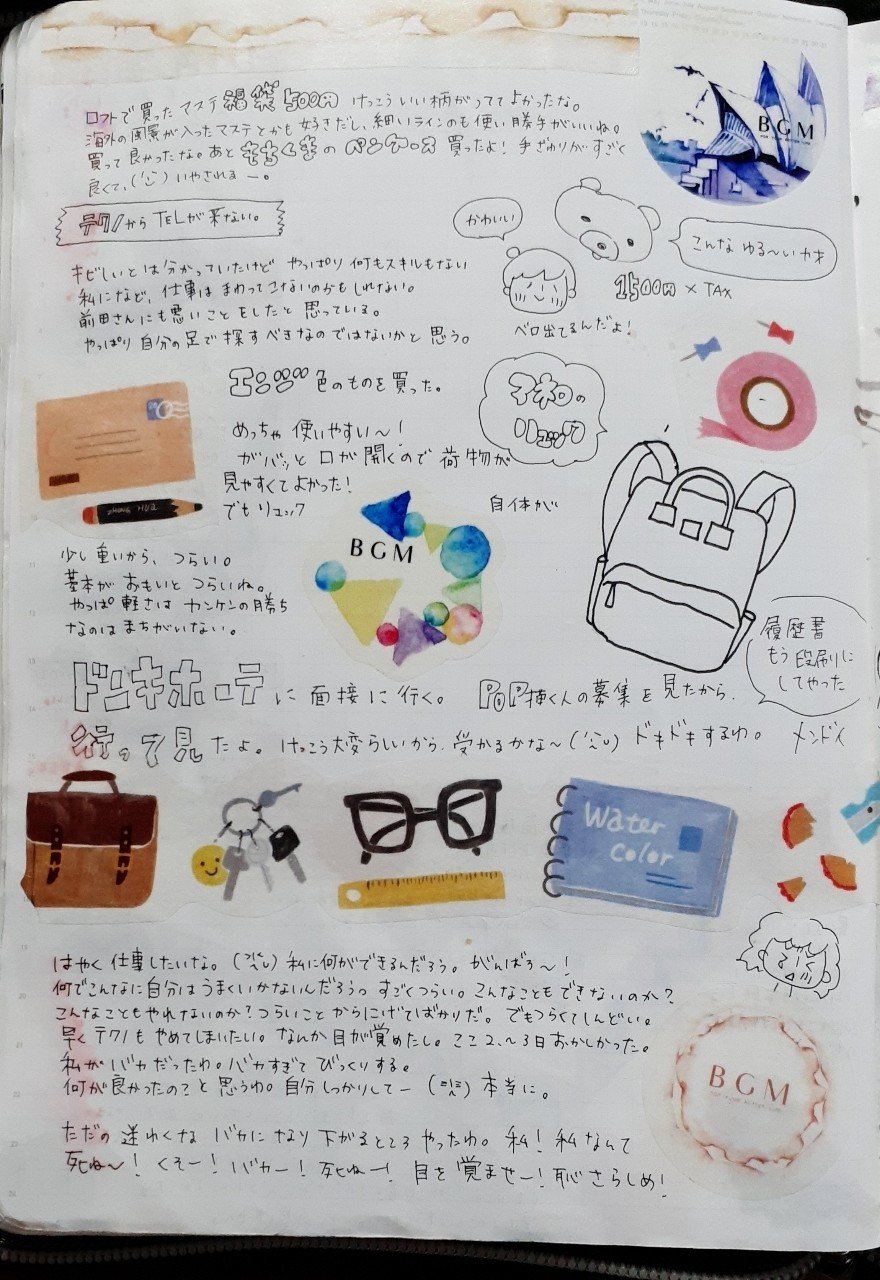 ロフトで買ったマステ福袋500円 けっこういい柄がっててよかったな。
海外の風景が入ったマステとかも好きだし、細いラインのも使い勝手がいいね。
買って良かったな。あともちくまのペンケース買ったよ!手ざわりがすごく
良くて、いやされるー。
BGM
テクノからTELが来ない。
かわいい
こんなゆる〜いカオ
1500円×TAX
ベロ出てるんだよ!
キビしいとは分かっていたけど やっぱり何もスキルもない
私になど、仕事はまわってこないのかもしれない。
前田さんにも悪いことをしたと思っている。
やっぱり自分の足で探すべきなのではないかと思う。
エンジ色のものを買った。
アネロの
リュック
めっちゃ使いやすい〜!
ガバッと口が開くので荷物が
見やすくてよかった!
でもリュック自体が
少し重いから、つらい。
基本がおもいとつらいね。
やっぱ軽さはカンケンの勝ち
なのはまちがいない。
ZHONG HUA
BGM
履歴書
もう段刷りに
してやった
メンドイ
ドンキホーテに面接に行く。 POP描くんの募集を見たから
行って見たよ。けっこう大変らしいから、受かるかな〜 ドキドキするわ。
Water
color
はやく仕事したいな。私に何ができるんだろう。がんばろ〜!
何でこんなに自分はうまくいかないんだろうっ すごくつらい。こんなこともできないのか?
こんなこともやれないのか?つらいことからにげてばかりだ。でもつらくてしんどい。
早くテクノもやめてしまいたい。なんか目が覚めたし。ここ2、〜3日おかしかった。
私がバカだったわ。バカすぎてびっくりする。
何が良かったの?と思うわ。自分しっかりしてー 本当に。
BGM
ただの迷わくなバカになり下がるところやったわ。私!私なんて
死ね〜!くそー!バカー!死ねー!目を覚ませー!恥さらしめ!